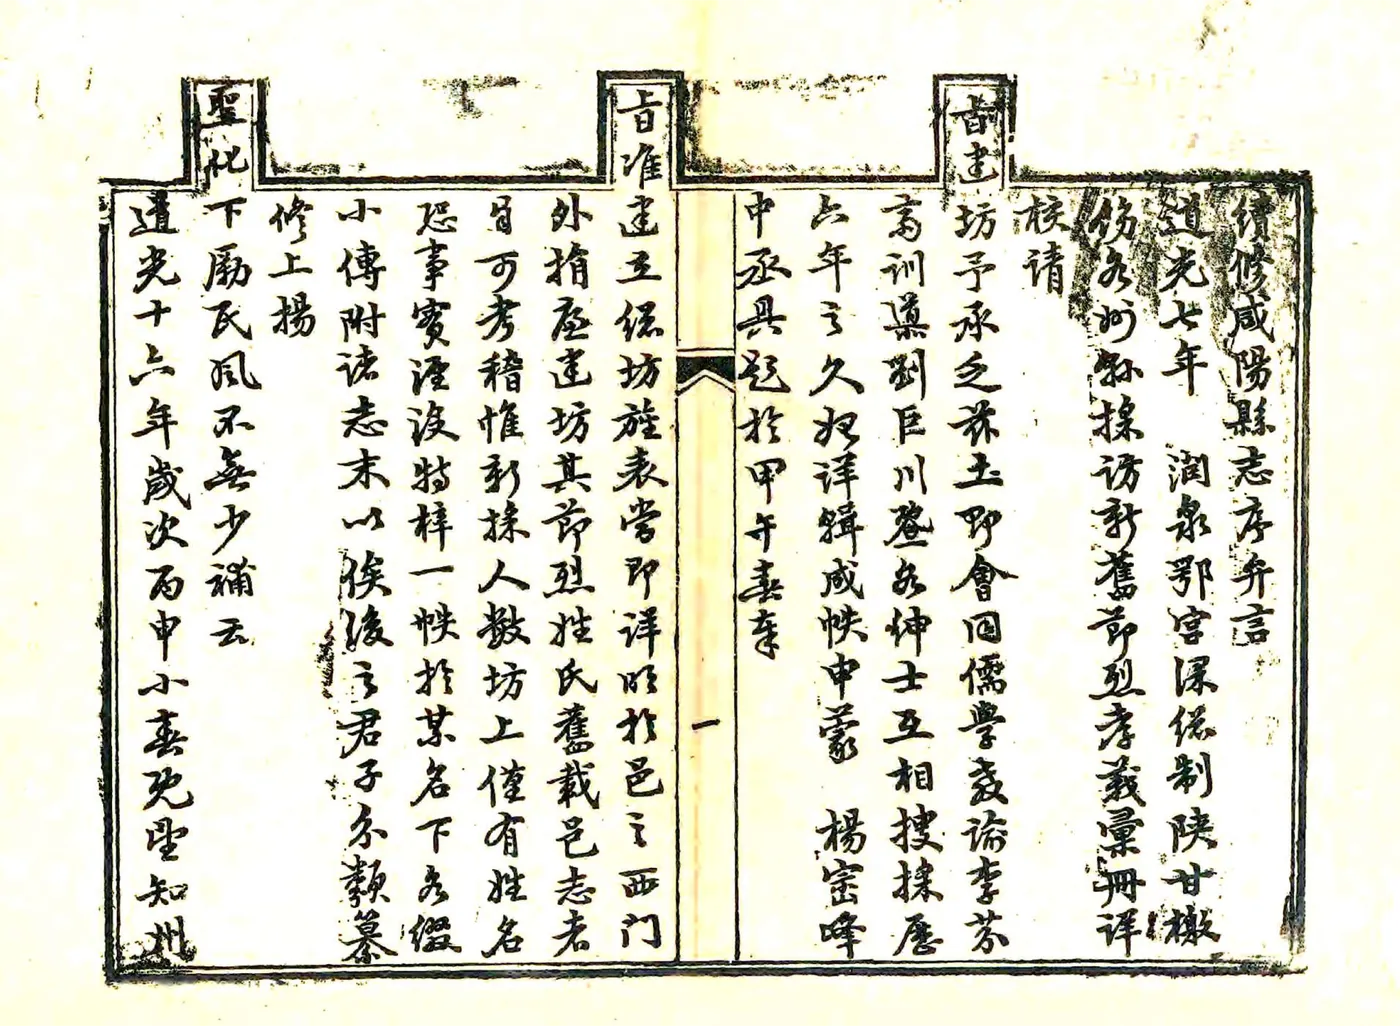 續修咸陽縣志序弁言
道光七年 潤泉鄂宮深總制陝甘檄
飭各州縣採訪新舊節烈孝義彙冊詳
核請
旨建坊予承乏茲土即會同儒學教諭李芬
高訓導劉巨川暨各紳士互相搜採歷
六年之久始詳輯成帙申蒙 楊密峰
中丞具題於甲午春奉
旨准建立總坊旌表當即詳明於邑之西門
外捐廉建坊其節烈姓氏舊載邑志者
自可考稽惟新採人數坊上僅有姓名
恐事實湮沒特梓一帙於某名下各綴
小傳附諸志末以俟後之君子分類纂
修上揚
聖化下勵民風不無少補云
道光十六年歲次丙申小春既望知州
一